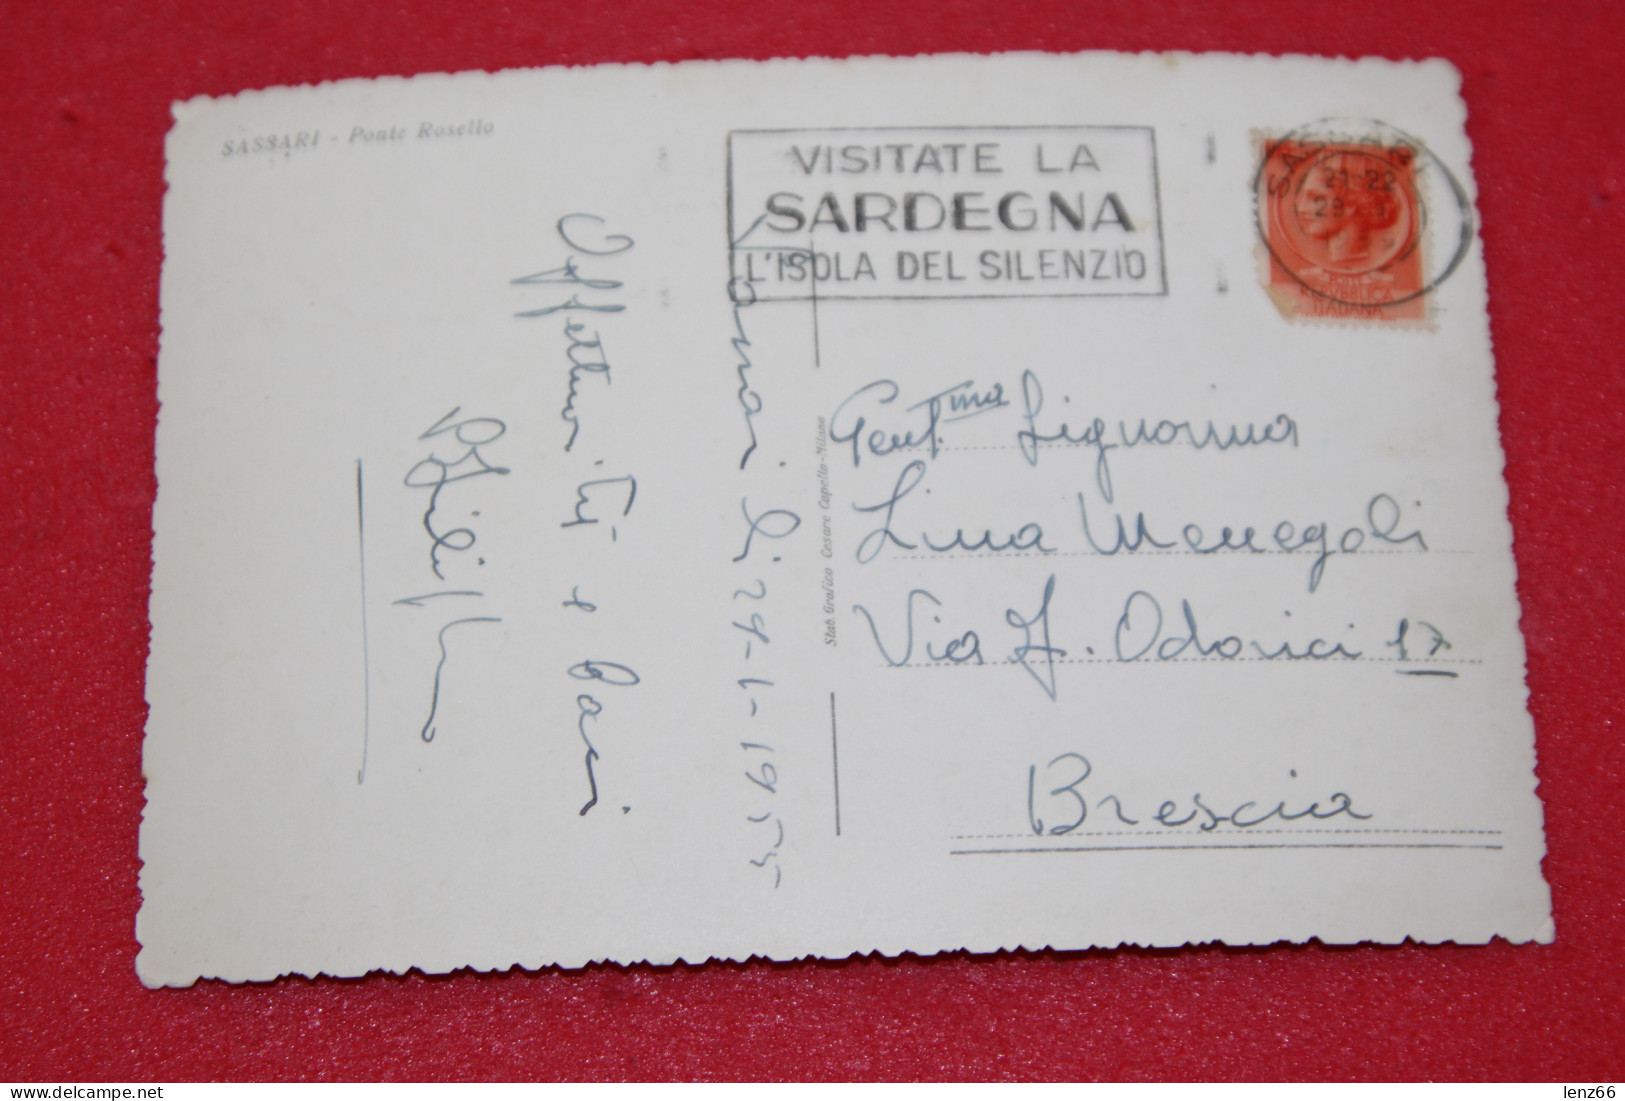 SASSARI - Ponte Rosello
VISITATE LA
SARDEGNA
L'ISOLA DEL SILENZIO
SASSARI
21-22
29
REPUBBLICA
ITALIANA
Sassari li 29-1-1955
Affettuosità e baci
Gent.ma Signorina
Lina Menegoli
Via F. Odorici 17
Brescia
Stab. Grafico Cesare Capello-Milano
delcampe.net
lenz66